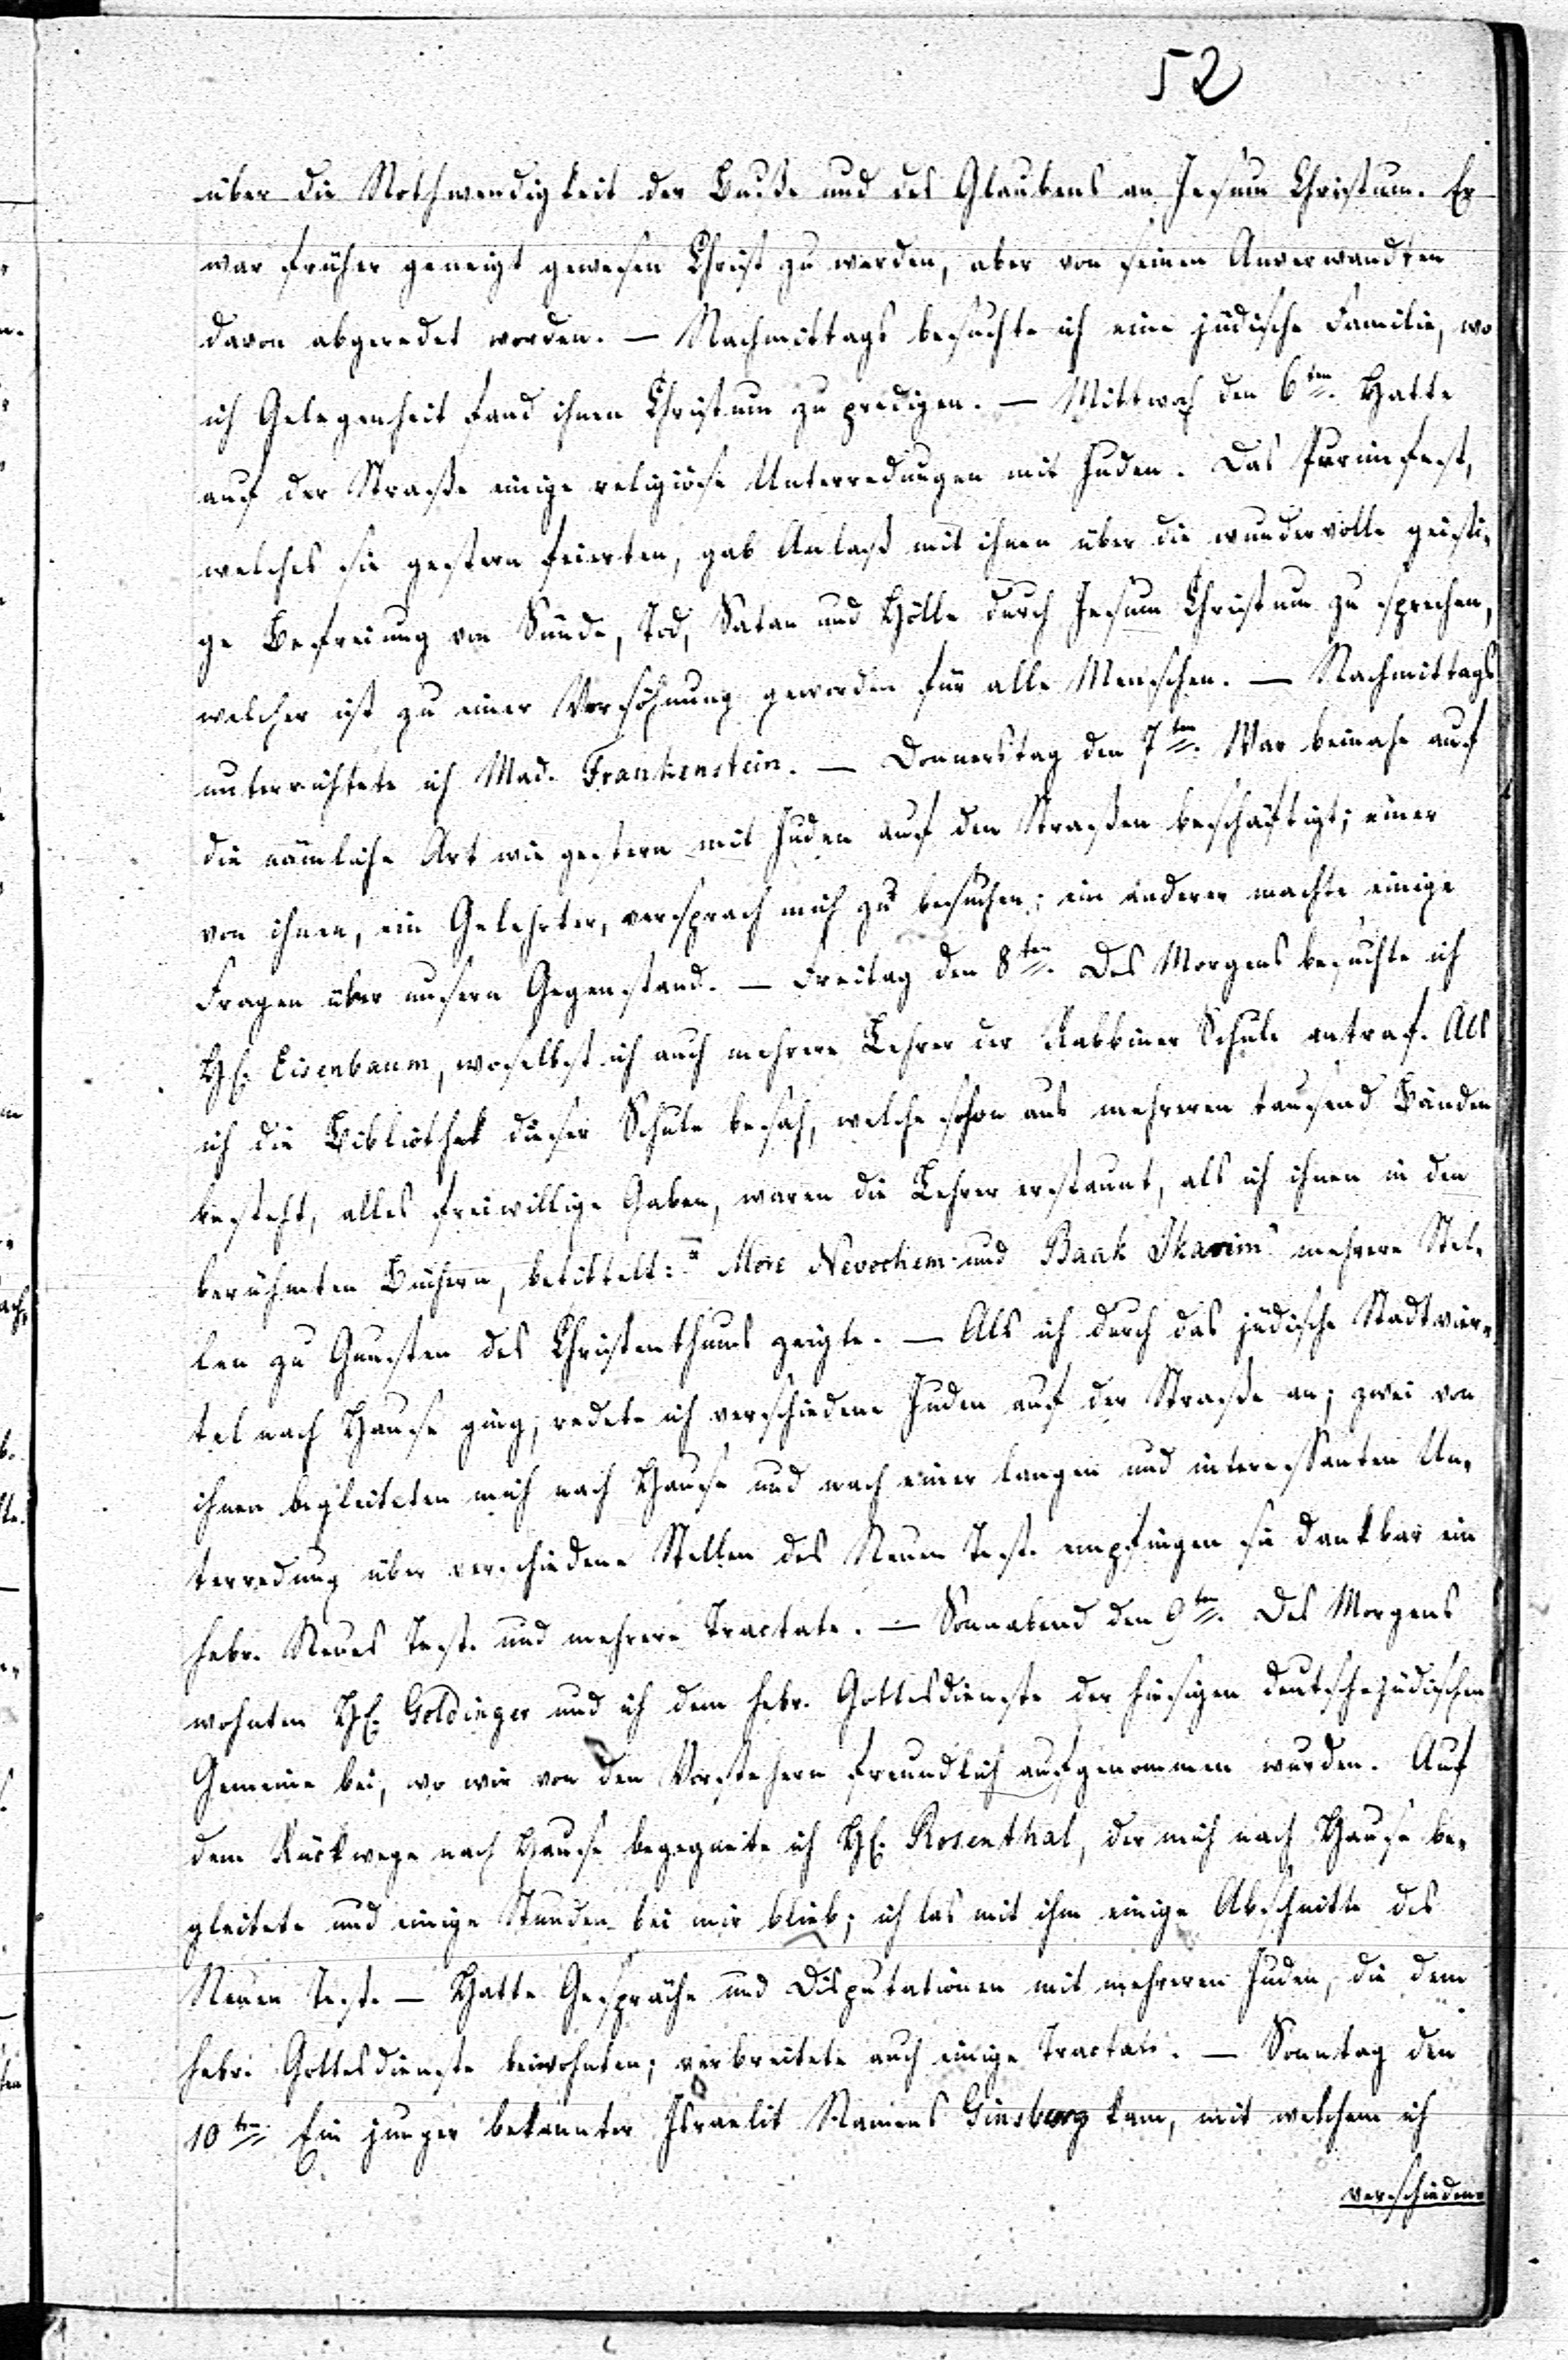 52
über die Nothwendigkeit der Buße und des Glaubens an Jesum Christum. Er
war früher geneigt gewesen Christ zu werden, aber von seinen Anverwandten
davon abgeredet worden. — Nachmittags besuchte ich eine jüdische Familie, wo
ich Gelegenheit fand ihnen Christum zu predigen. — Mittwoch den 6ten. Hatte
auf der Straße einige religiöse Unterredungen mit Juden. Das Purimfest,
welches sie gestern feierten, gab Anlaß mit ihnen über die wundervolle geisti-
ge Befreiung von Sünde, Tod, Satan und Hölle durch Jesum Christum zu sprechen,
welcher ist zu einer Versöhnung geworden für alle Menschen. — Nachmittags
unterrichtete ich Mad. Frankenstein. — Donnerstag den 7ten. War beinahe auf
die nämliche Art wie gestern mit Juden auf den Straßen beschäftigt; einer
von ihnen, ein Gelehrter, versprach mich zu besuchen; ein anderer machte einige
Fragen über unsern Gegenstand. — Freitag den 8ten. Des Morgens besuchte ich
H. Eisenbaum, woselbst ich auch mehrere Lehrer der Rabbiner Schule antraf. Als
ich die Bibliothek dieser Schule besah, welche schon aus mehreren tausend Bänden
besteht, alles freiwillige Gaben, waren die Lehrer erstaunt, als ich ihnen in den
berühmten Büchern, betittelt: "More Nevochem und Baak Ikarim" mehrere Stel-
len zu Gunsten des Christenthums zeigte. — Als ich durch das jüdische Stadtvier-
tel nach Hause ging, redete ich verschiedene Juden auf der Straße an; zwei von
ihnen begleiteten mich nach Hause und nach einer langen und interessanten Un-
terredung über verschiedene Stellen des Neuen Test. empfingen sie dankbar ein
hebr. Neues Test. und mehrere Tractate. — Sonnabend den 9ten. Des Morgens
wohnten H. Goldinger und ich dem hebr. Gottesdienste der hiesigen deutsch-jüdischen
Gemeine bei, wo wir von den Vorstehern freundlich aufgenommen wurden. Auf
dem Rückwege nach Hause begegnete ich H. Rosenthal, der mich nach Hause be-
gleitete und einige Stunden bei mir blieb; ich las mit ihm einige Abschnitte des
Neuen Test. — Hatte Gespräche und Disputationen mit mehreren Juden, die dem
hebr. Gottesdienste beiwohnten; verbreitete auch einige Tractate. — Sonntag den
10ten Ein junger bekannter Israelit Namens Ginsburg kam, mit welchem ich
verschiedene